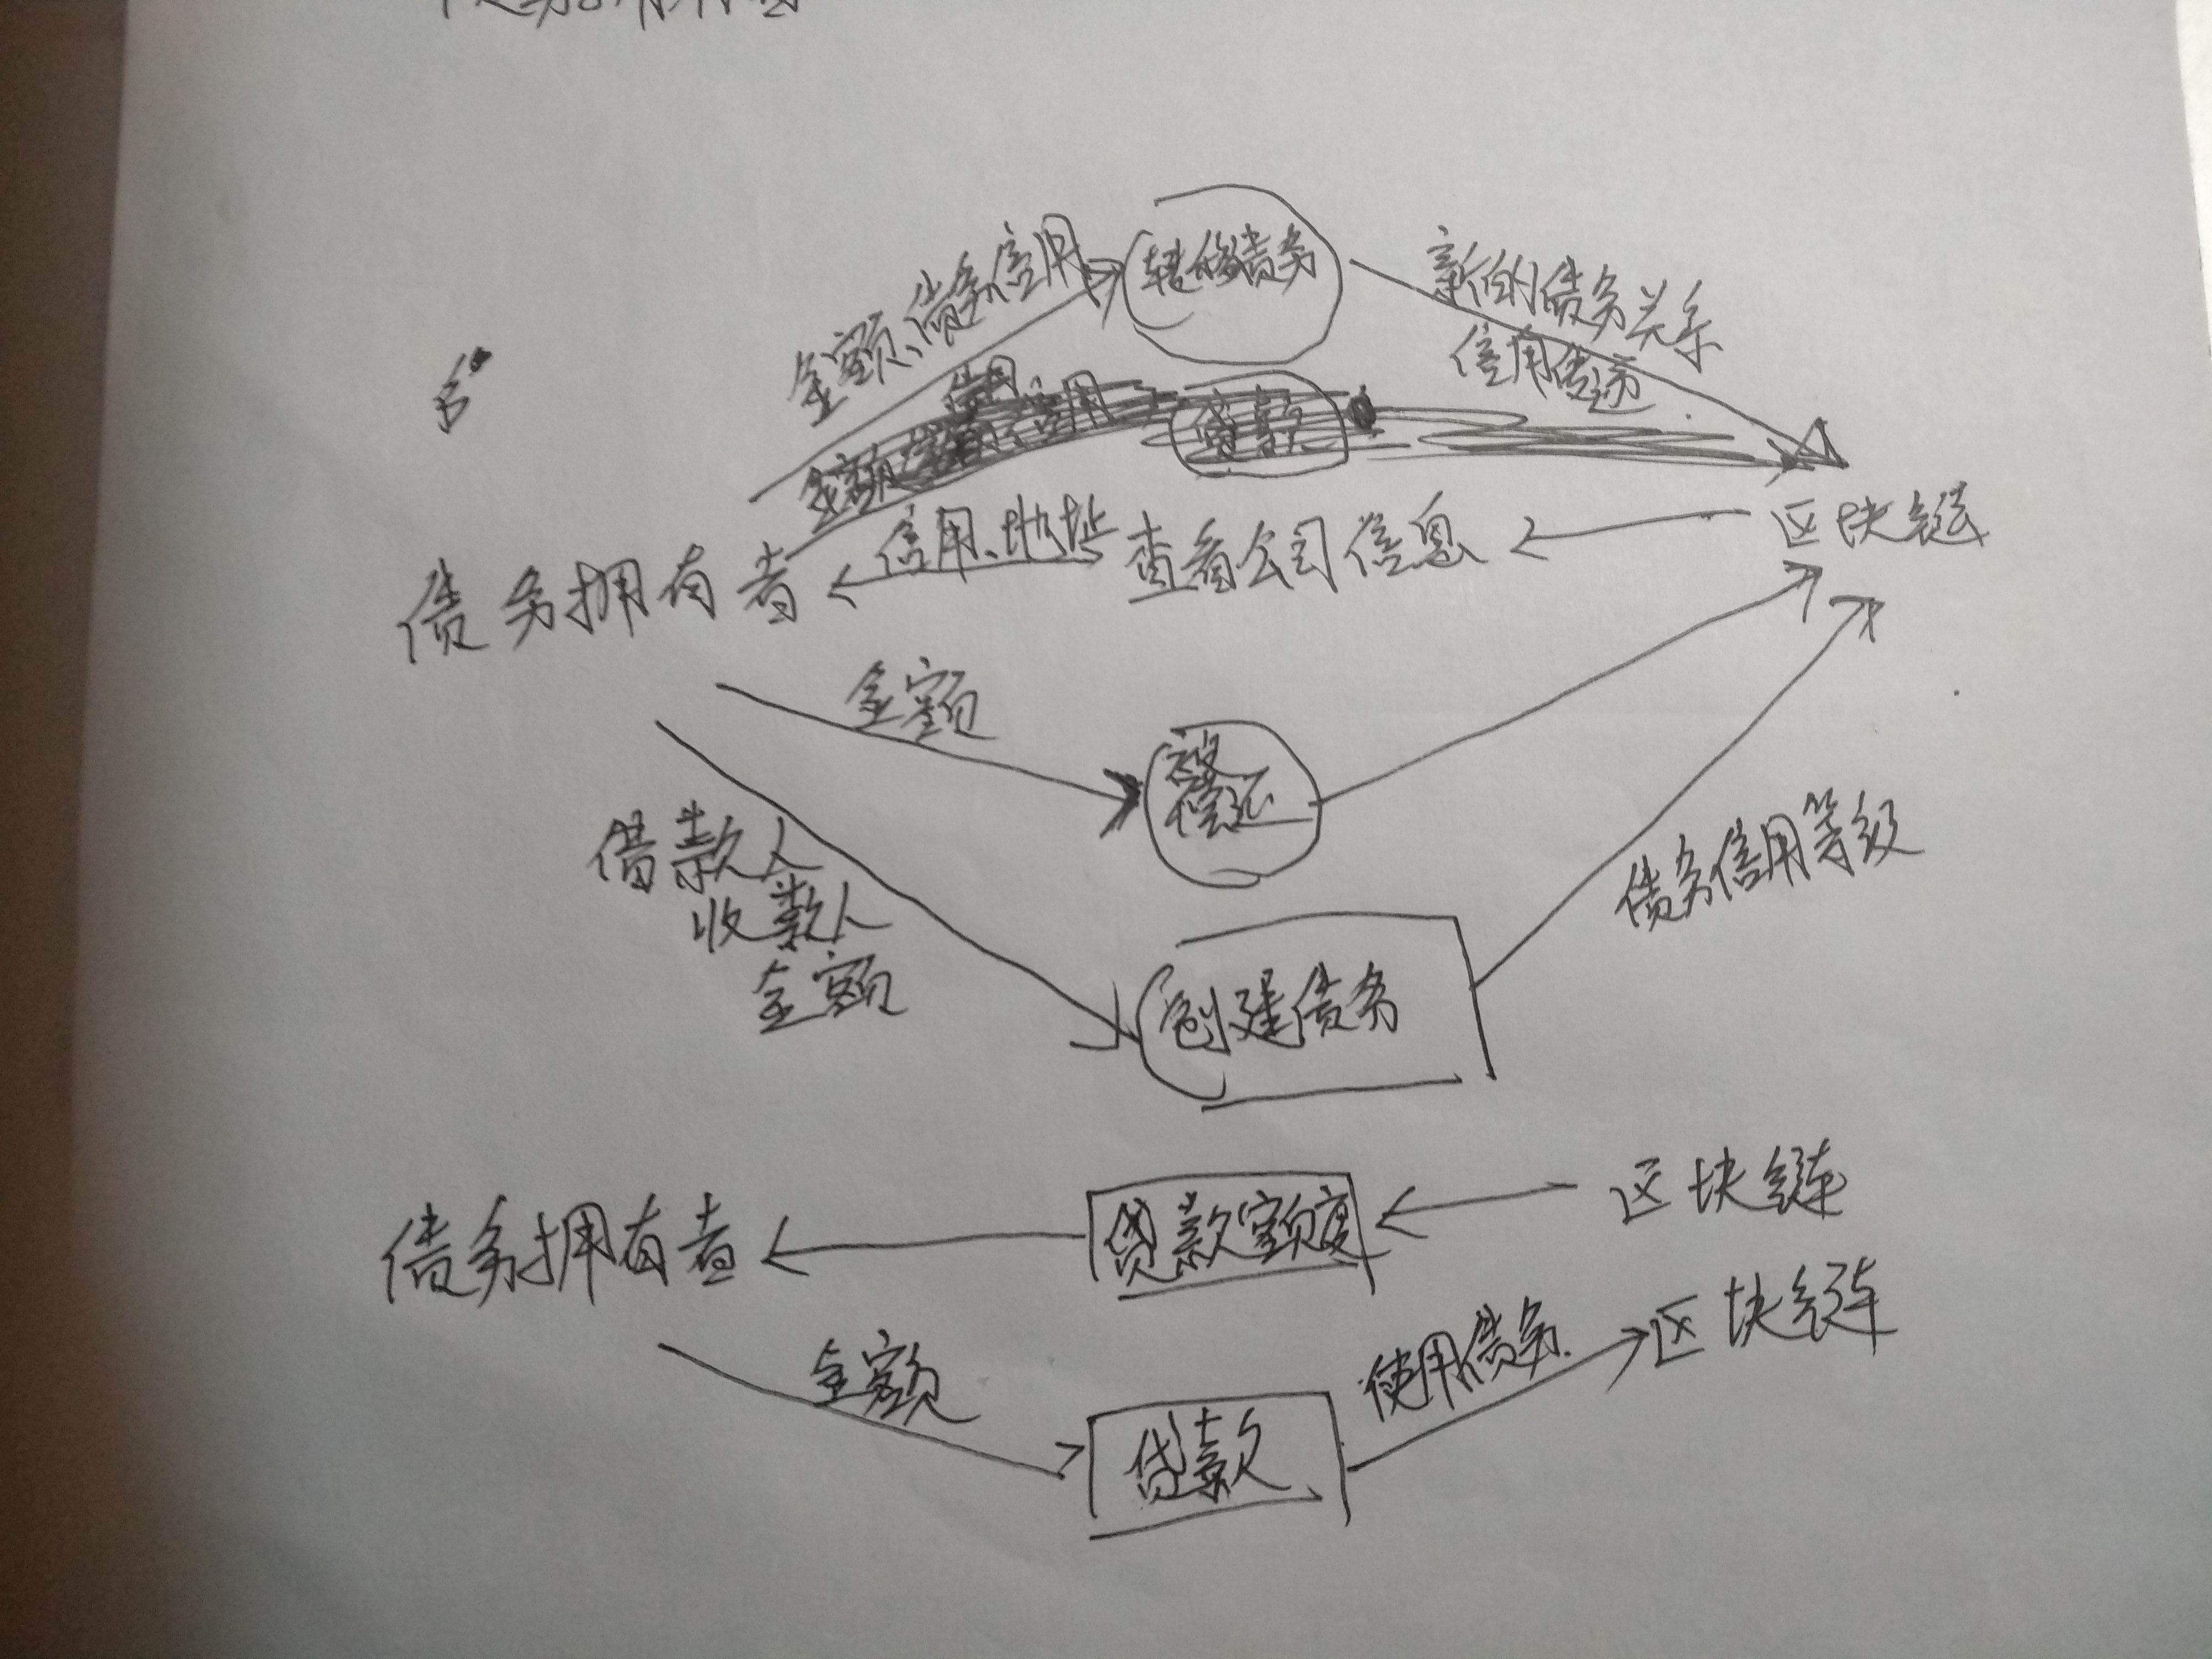 转移债务
金额、债务信用
新的债务关系
信用传递
金额
信用
贷款
区块链
信用、地址
查看公司信息
债务拥有者
金额
偿还
借款人
收款人
金额
债务信用等级
创建债务
区块链
贷款额度
债务拥有者
区块链
使用债务
金额
贷款